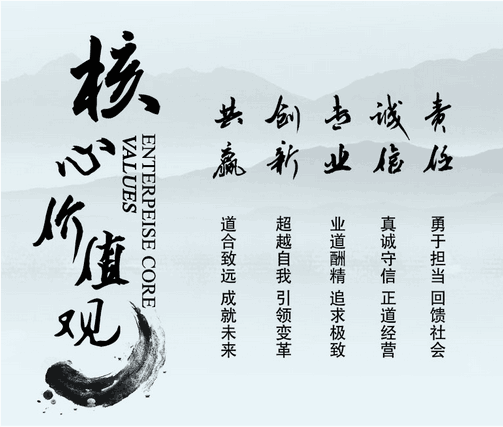 核心价值观
ENTERPEISE CORE
VALUES
责任
勇于担当 回馈社会
诚信
真诚守信 正道经营
专业
业道酬精 追求极致
创新
超越自我 引领变革
共赢
道合致远 成就未来